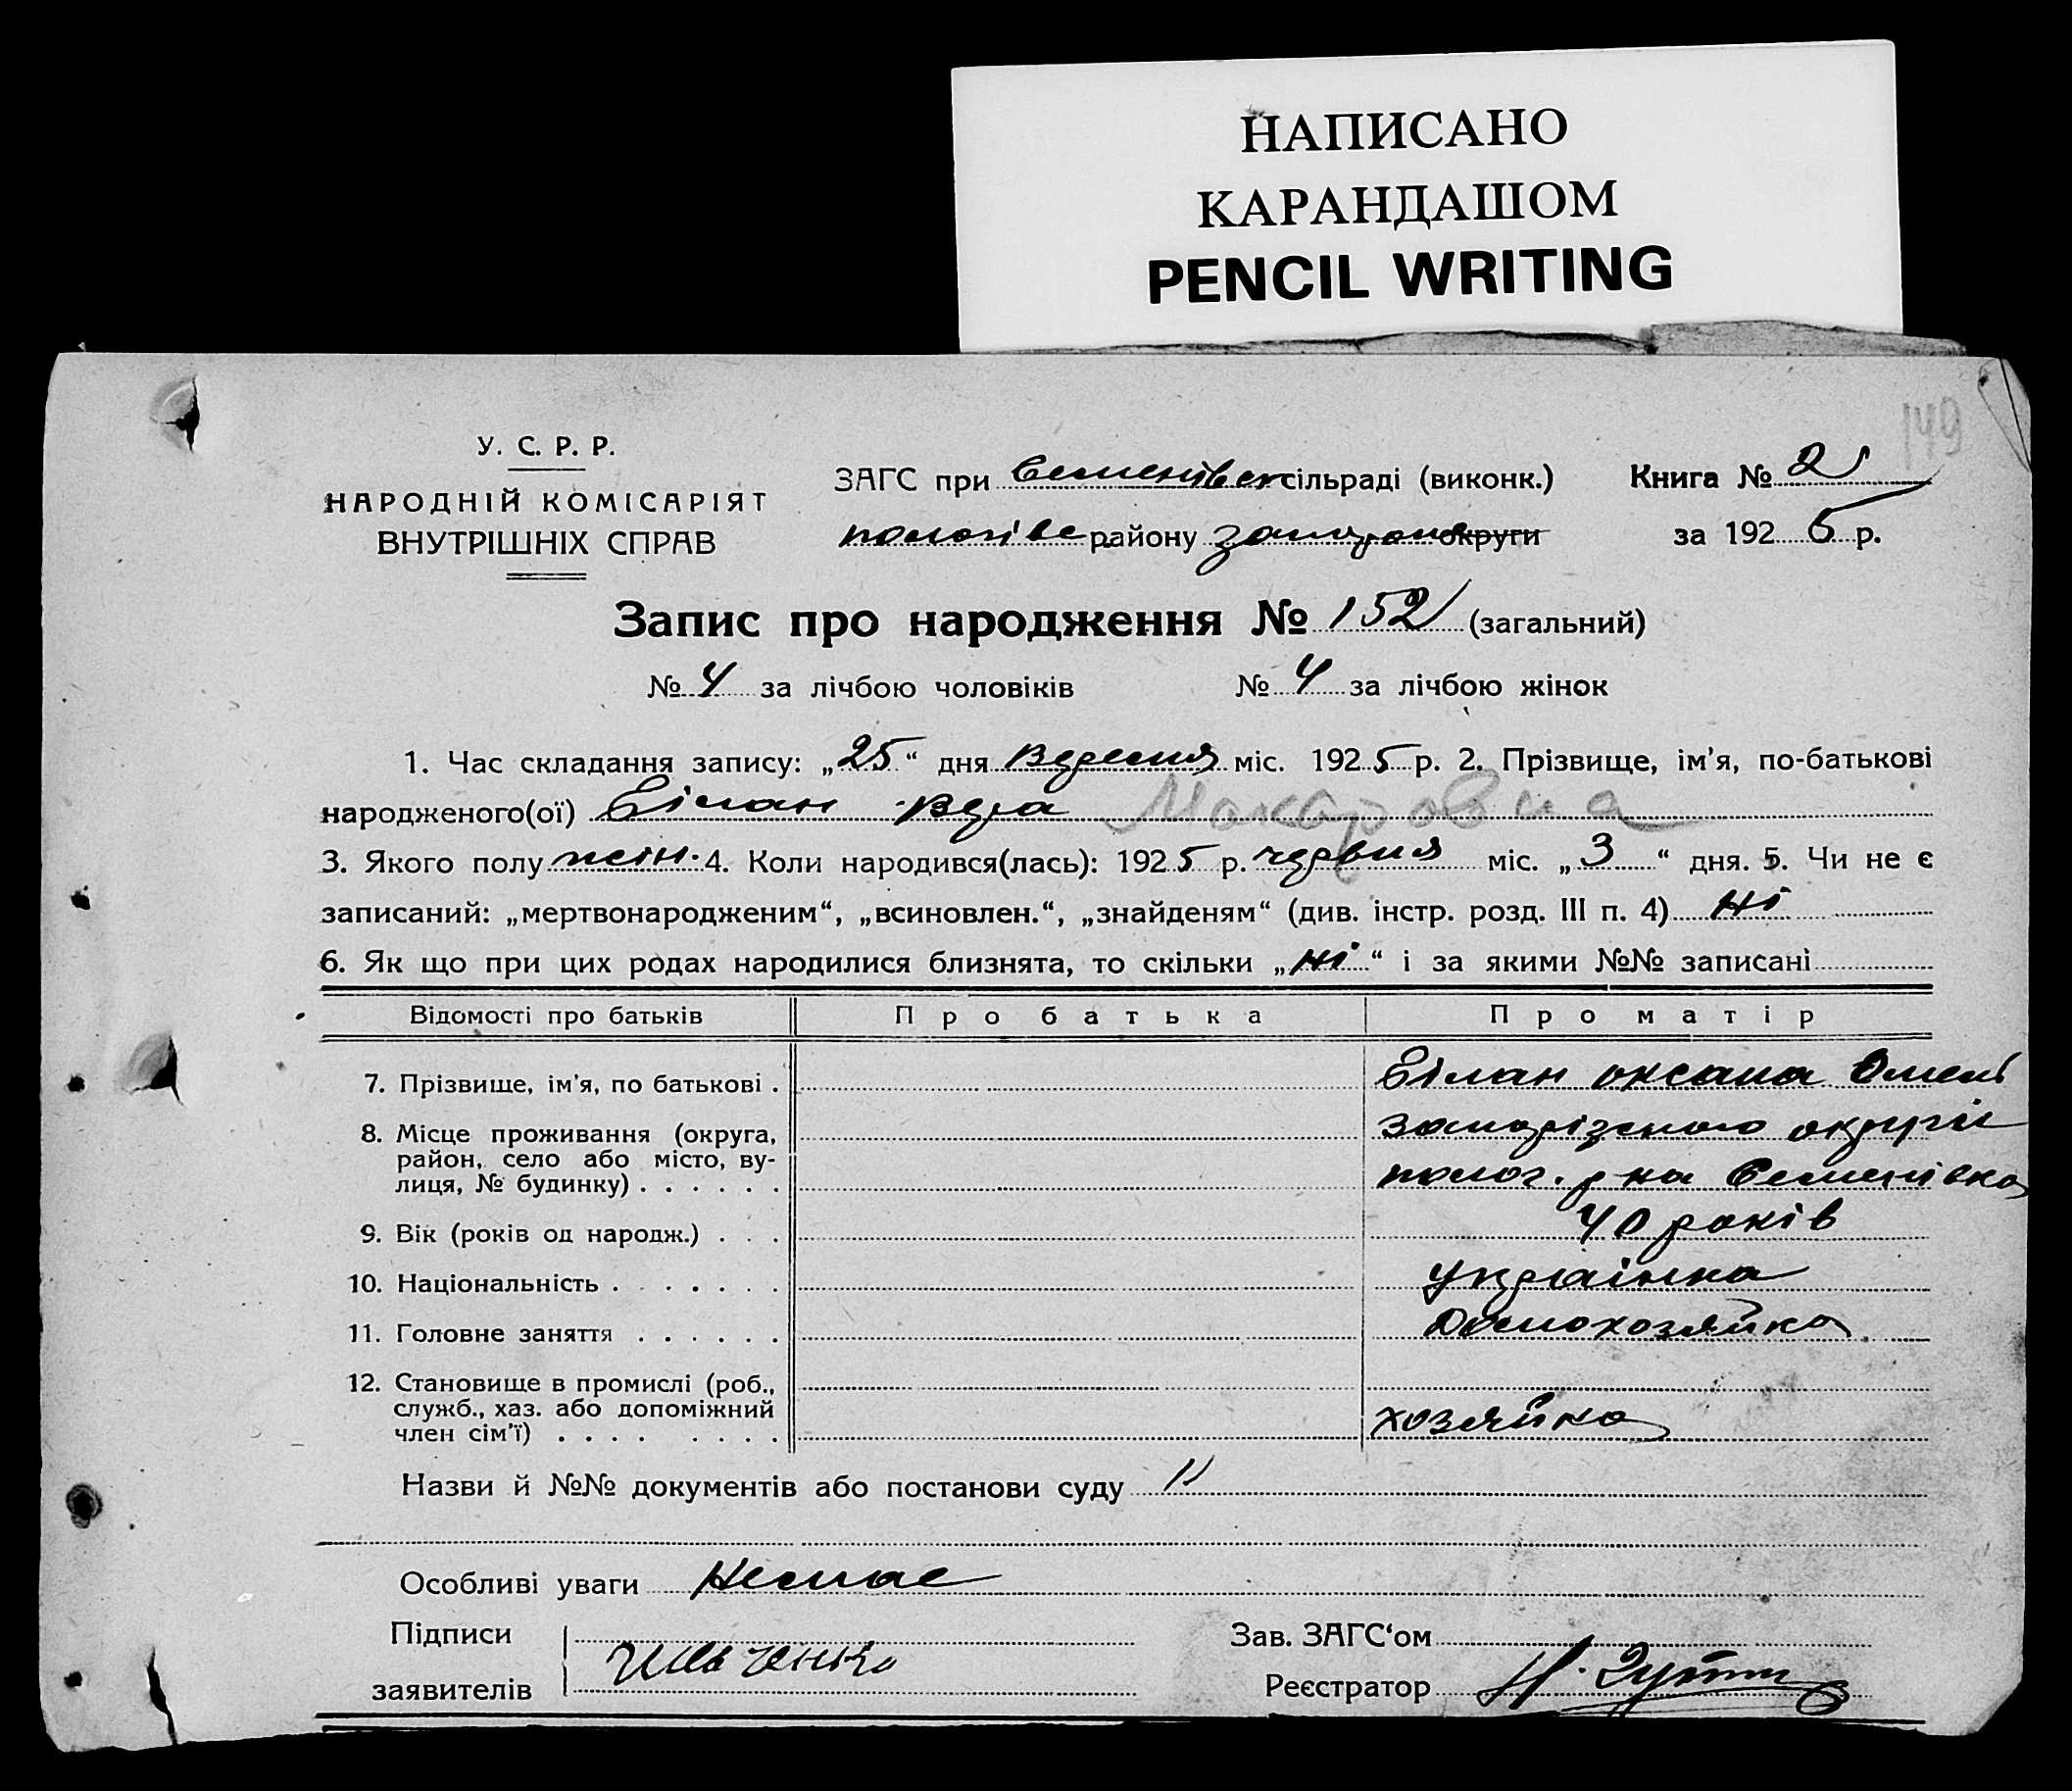 НАПИСАНО
КАРАНДАШОМ
PENCIL WRITING
149
У. С. Р. Р.
НАРОДНІЙ КОМІСАРІЯТ
ВНУТРІШНІХ СПРАВ
ЗАГС при Семенівск сільраді (виконк.)
пологівс району запорож округи
Книга № 2
за 1925 р.
Запис про народження № 152 (загальний)
№ 4 за лічбою чоловіків № 4 за лічбою жінок
1. Час складання запису: „25“ дня Вересня міс. 1925 р. 2. Прізвище, ім'я, по-батькові
народженого(ої) Білан Вера Макаровна
3. Якого полу жін. 4. Коли народився(лась): 1925 р. червня міс. „3“ дня. 5. Чи не є
записаний: „мертвонародженим“, „всиновлен.“, „знайденям“ (див. інстр. розд. III п. 4) ні
6. Як що при цих родах народилися близнята, то скільки „ні“ і за якими №№ записані
Відомості про батьків Про батька Про матір
7. Прізвище, ім'я, по батькові . Білан оксана Омел
8. Місце проживання (округа, запорізького округи
район, село або місто, ву-
лиця, № будинку) . . . . . . полог. р-на Семенівка
9. Вік (років од народж.) . . . 40 років
10. Національність . . . . . . українка
11. Головне заняття . . . . . . Домохозяйка
12. Становище в промислі (роб.,
служб., хаз. або допоміжний хозяйка
член сім'ї) . . . . . . . .
Назви й №№ документів або постанови суду "
Особливі уваги Немає
Підписи
заявителів
Зав. ЗАГС‘ом
Реєстратор